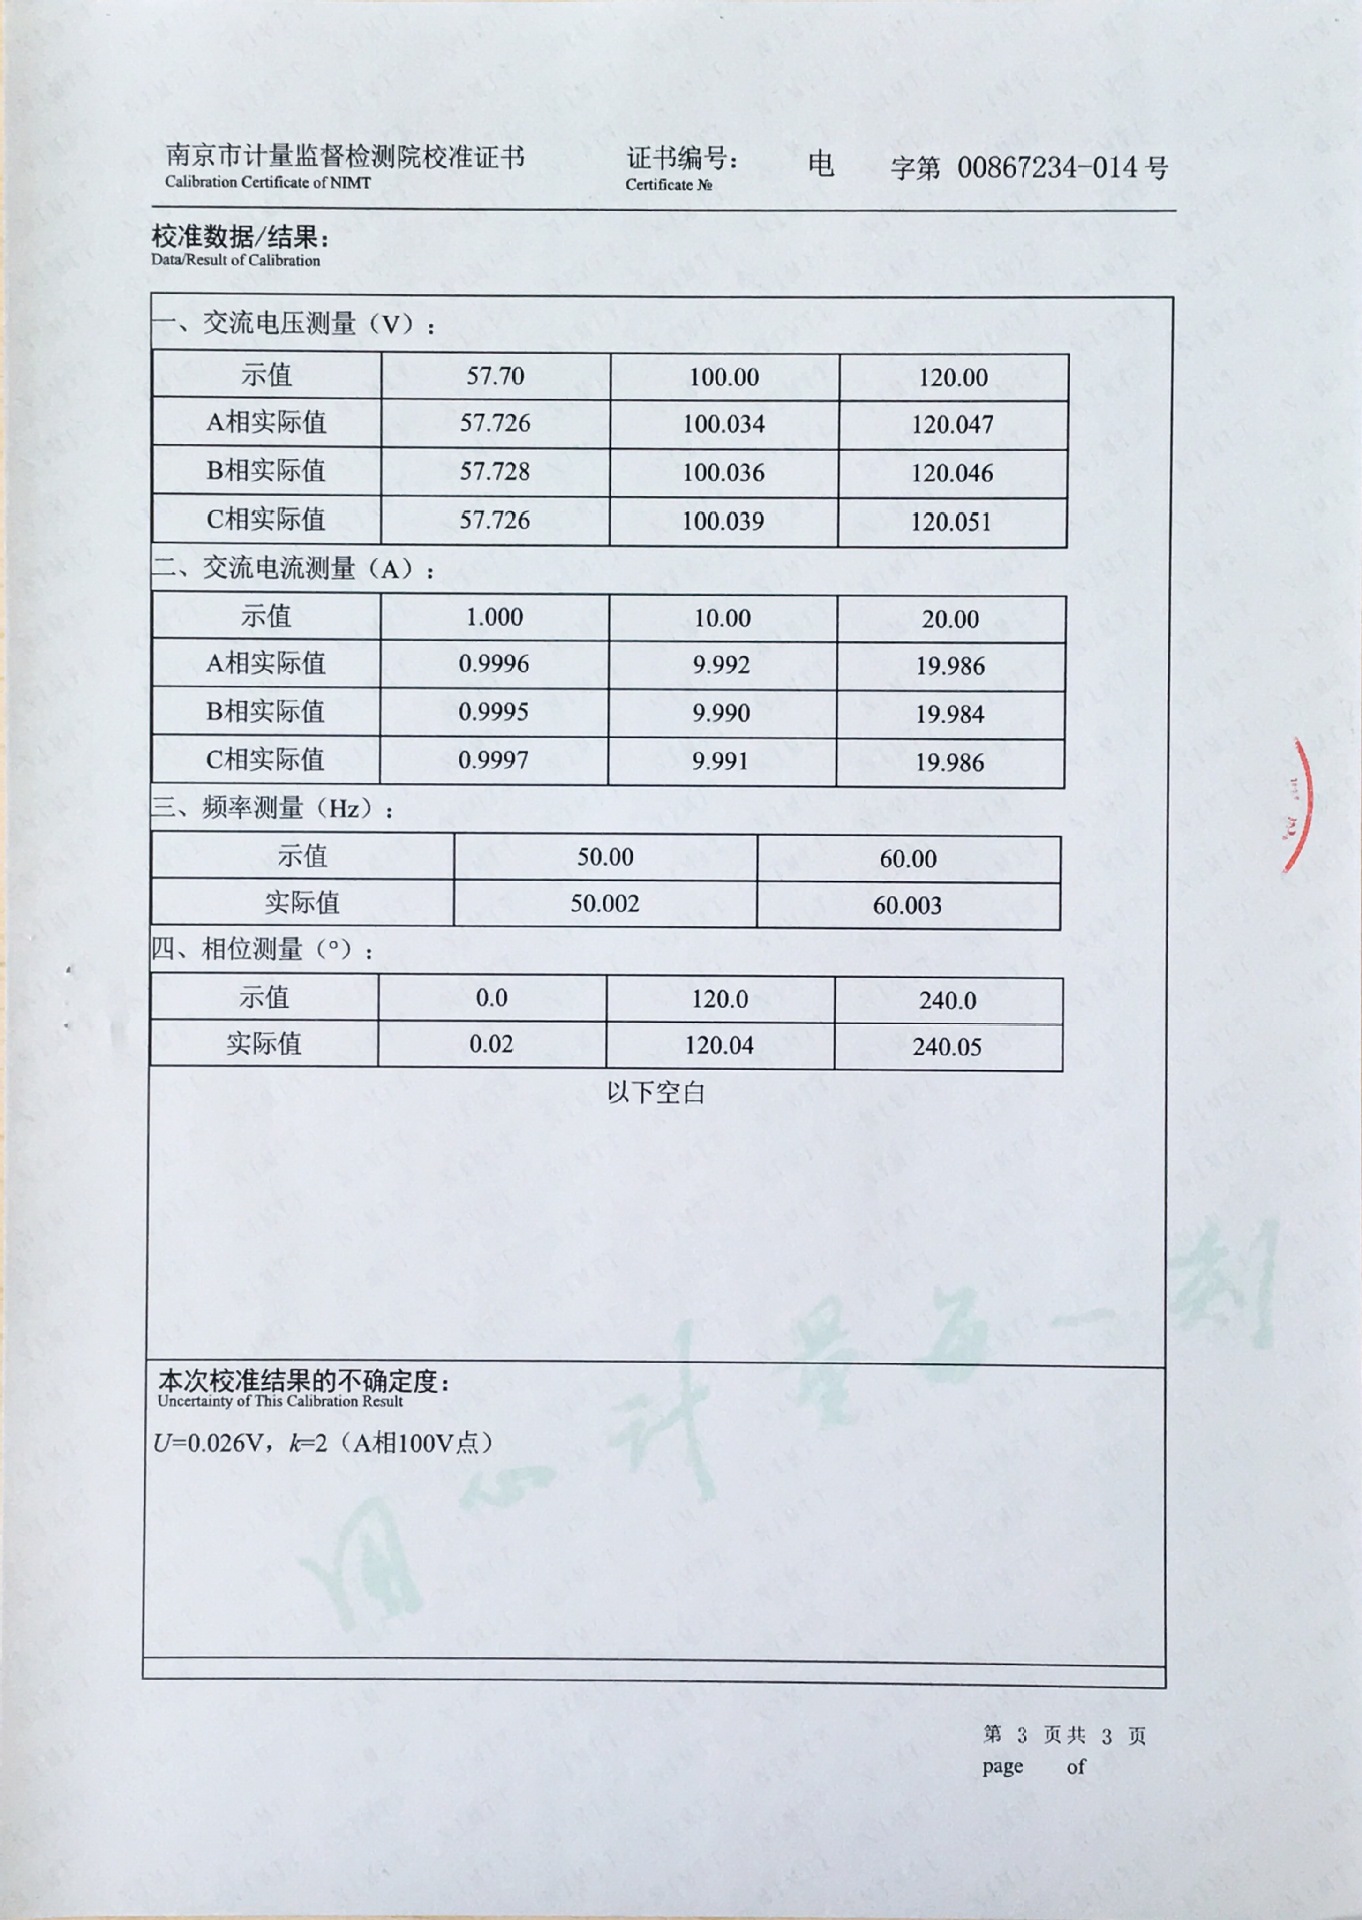 南京市计量监督检测院校准证书 证书编号： 电 字第 00867234-014 号
Calibration Certificate of NIMT Certificate №
校准数据/结果：
Data/Result of Calibration
一、交流电压测量（V）：
示值 57.70 100.00 120.00
A相实际值 57.726 100.034 120.047
B相实际值 57.728 100.036 120.046
C相实际值 57.726 100.039 120.051
二、交流电流测量（A）：
示值 1.000 10.00 20.00
A相实际值 0.9996 9.992 19.986
B相实际值 0.9995 9.990 19.984
C相实际值 0.9997 9.991 19.986
三、频率测量（Hz）：
示值 50.00 60.00
实际值 50.002 60.003
四、相位测量（°）：
示值 0.0 120.0 240.0
实际值 0.02 120.04 240.05
以下空白
用心计量每一刻
本次校准结果的不确定度：
Uncertainty of This Calibration Result
U=0.026V，k=2（A相100V点）
第 3 页共 3 页
page of